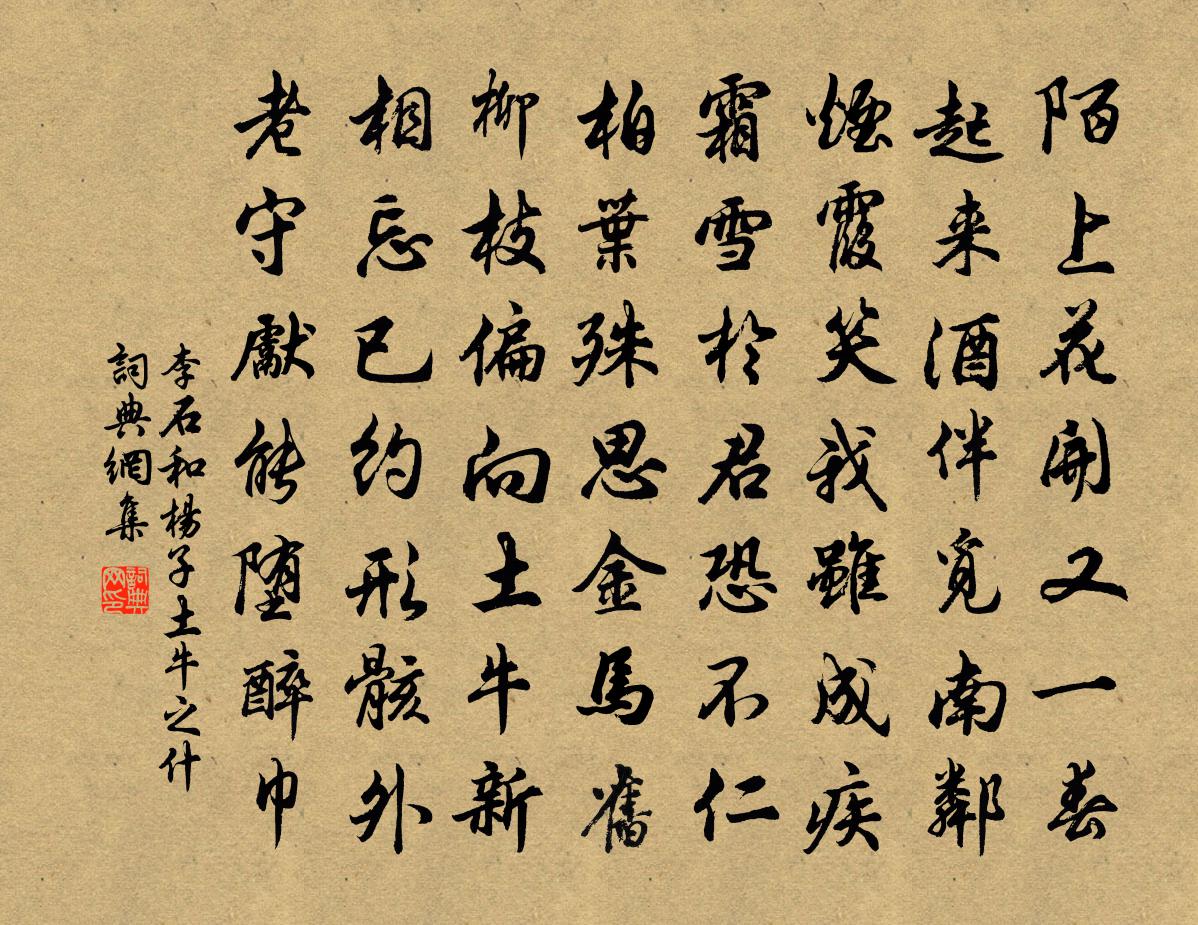 陌上花開又一春
起来酒伴覓南鄰
煙霞笑我雖成疾
霜雪於君恐不仁
柏葉殊思金馬舊
柳枝偏向土牛新
相忘已約形骸外
老守獻能墮醉巾
李石和楊子土牛之什
詞典網集
詞典网印